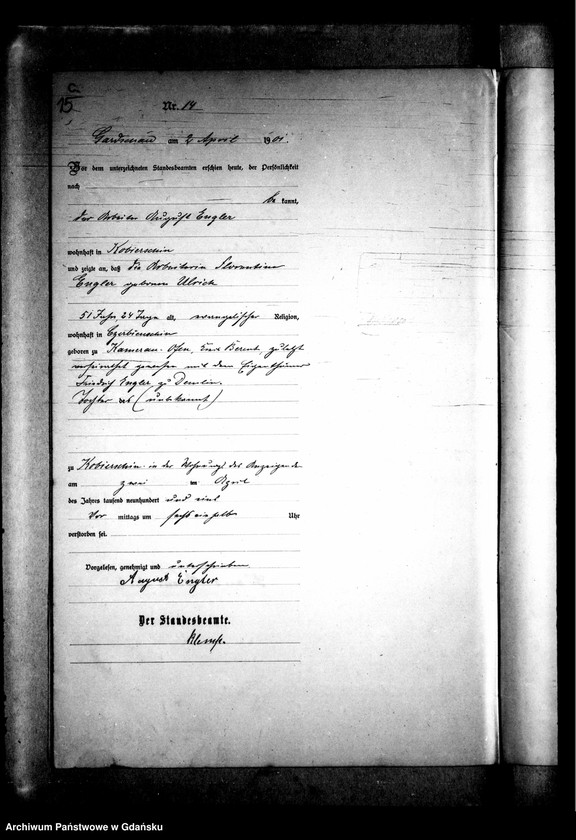 C
15
Nr. 14
am 2 April 1901.
Vor dem unterzeichneten Standesbeamten erschien heute, der Persönlichkeit
nach
bekannt,
der Arbeiter August Engler
wohnhaft in Kobierschin
und zeigte an, daß die Arbeiterin Florentine
Engler geborene Ulrich
51 Jahr, 24 Tage alt, evangelischer Religion,
wohnhaft in
geboren zu Kameran Ofen, Kreis Berent, zuletzt
verheirathet gewesen mit dem Eigenthümer
Friedrich Engler zu
Tochter des (unbekannt)
zu Kobierschin in der Wohnung des Anzeigende
am zwei ten April
des Jahres tausend neunhundert und eins
Vor mittags um sechs ein halb Uhr
verstorben sei.
Vorgelesen, genehmigt und unterschrieben
August Engler
Der Standesbeamte.
Archiwum Państwowe w Gdańsku